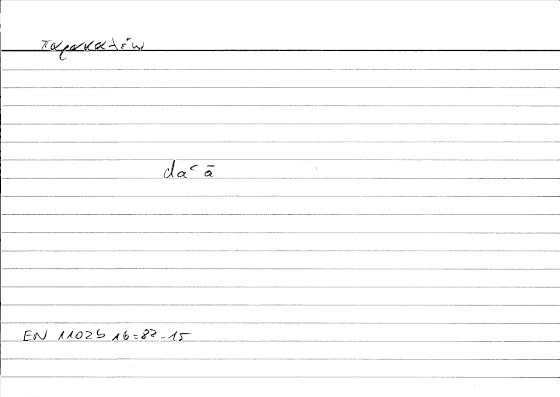 παρακαλέω
daʿā
EN 11025 16=82-15